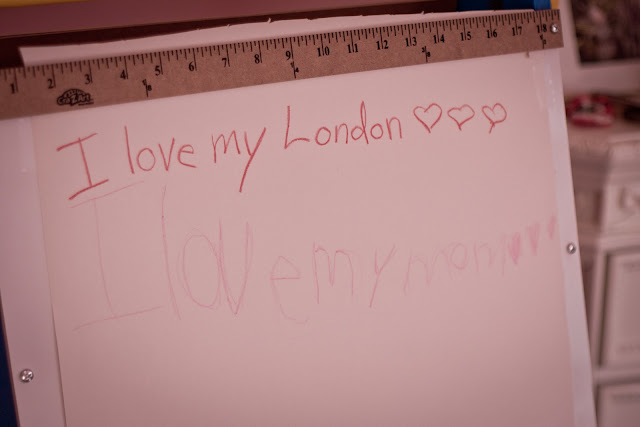 1 2 3 4 5 6 7 8 9 10 11 12 13 14 15 16 17 18
I love my London ♡♡♡
I love my mom ♥♥♥